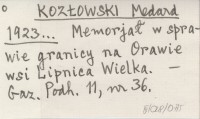 KOZŁOWSKI Medard
1923... Memorjał w spra-
wie granicy na Orawie
wsi Lipnica Wielka. —
Gaz. Podh. 11, nr 36.